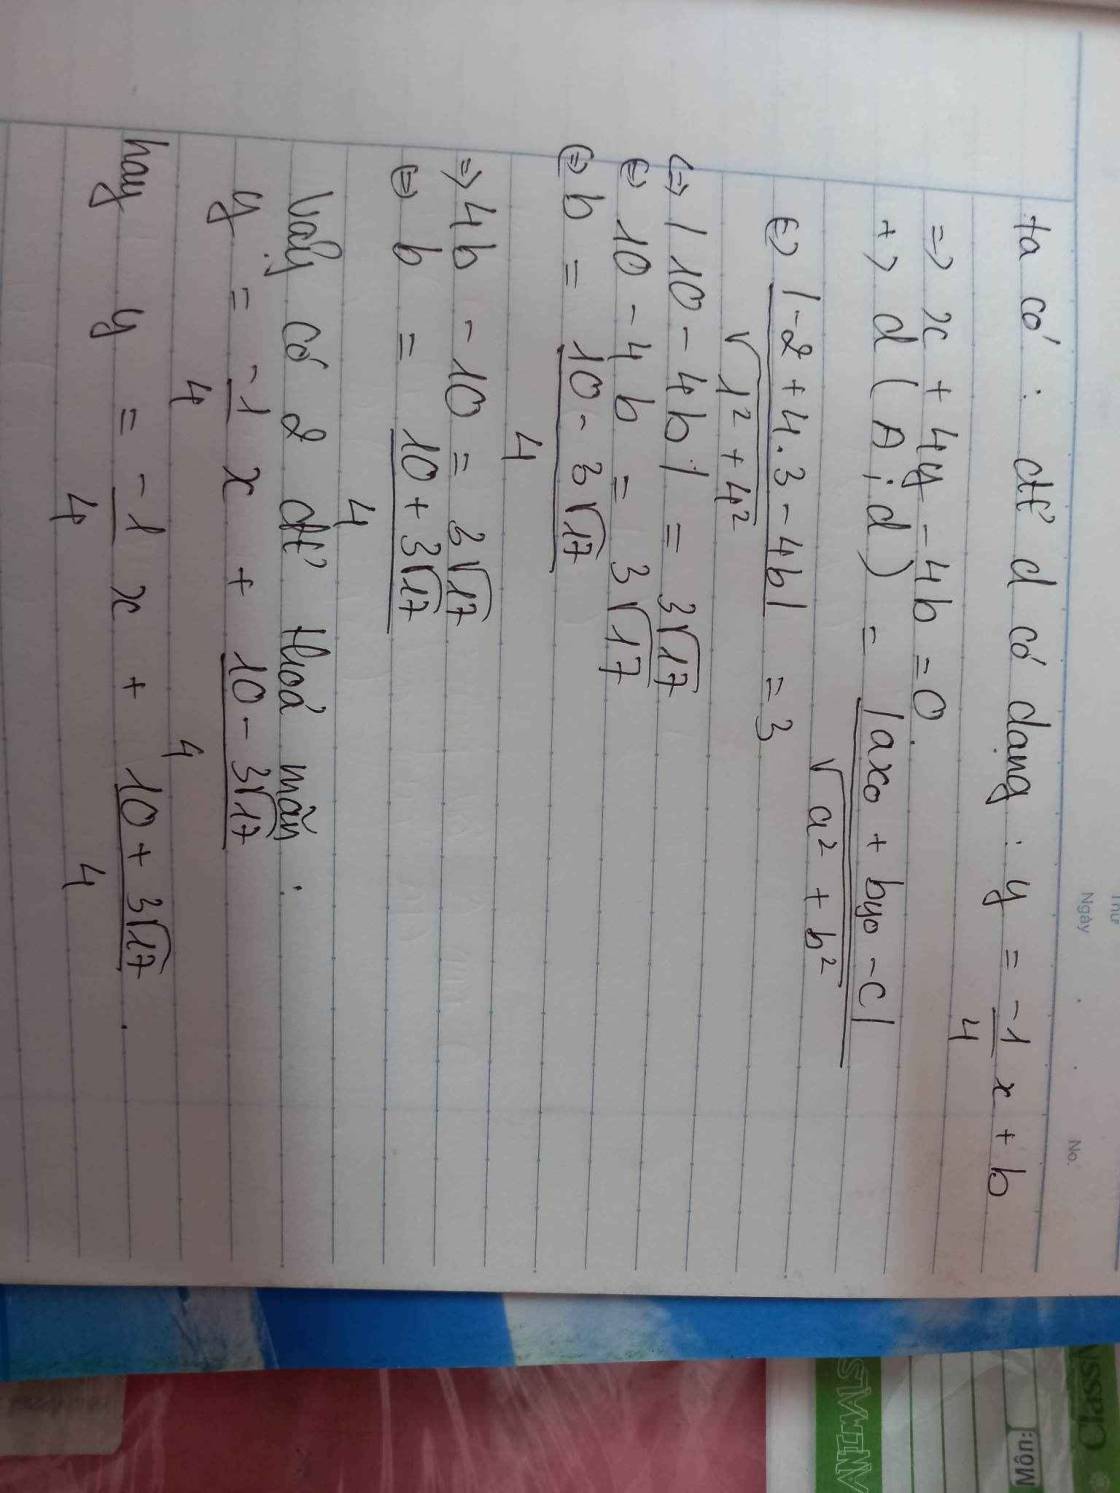 Thứ
Ngày . . No.
ta có : đt' d có dạng : y = -1/4 x + b
=> x + 4y - 4b = 0.
+> d(A; d) = |axo + byo - c| / √a² + b²
<=> |-2 + 4.3 - 4b| / √1² + 4² = 3
<=> |10 - 4b| = 3√17
<=> 10 - 4b = 3√17
<=> b = 10 - 3√17 / 4
=> 4b - 10 = 3√17
<=> b = 10 + 3√17 / 4
Vậy có 2 đt' thoả mãn :
y = -1/4 x + 10 - 3√17 / 4
hay y = -1/4 x + 10 + 3√17 / 4 .
Môn: